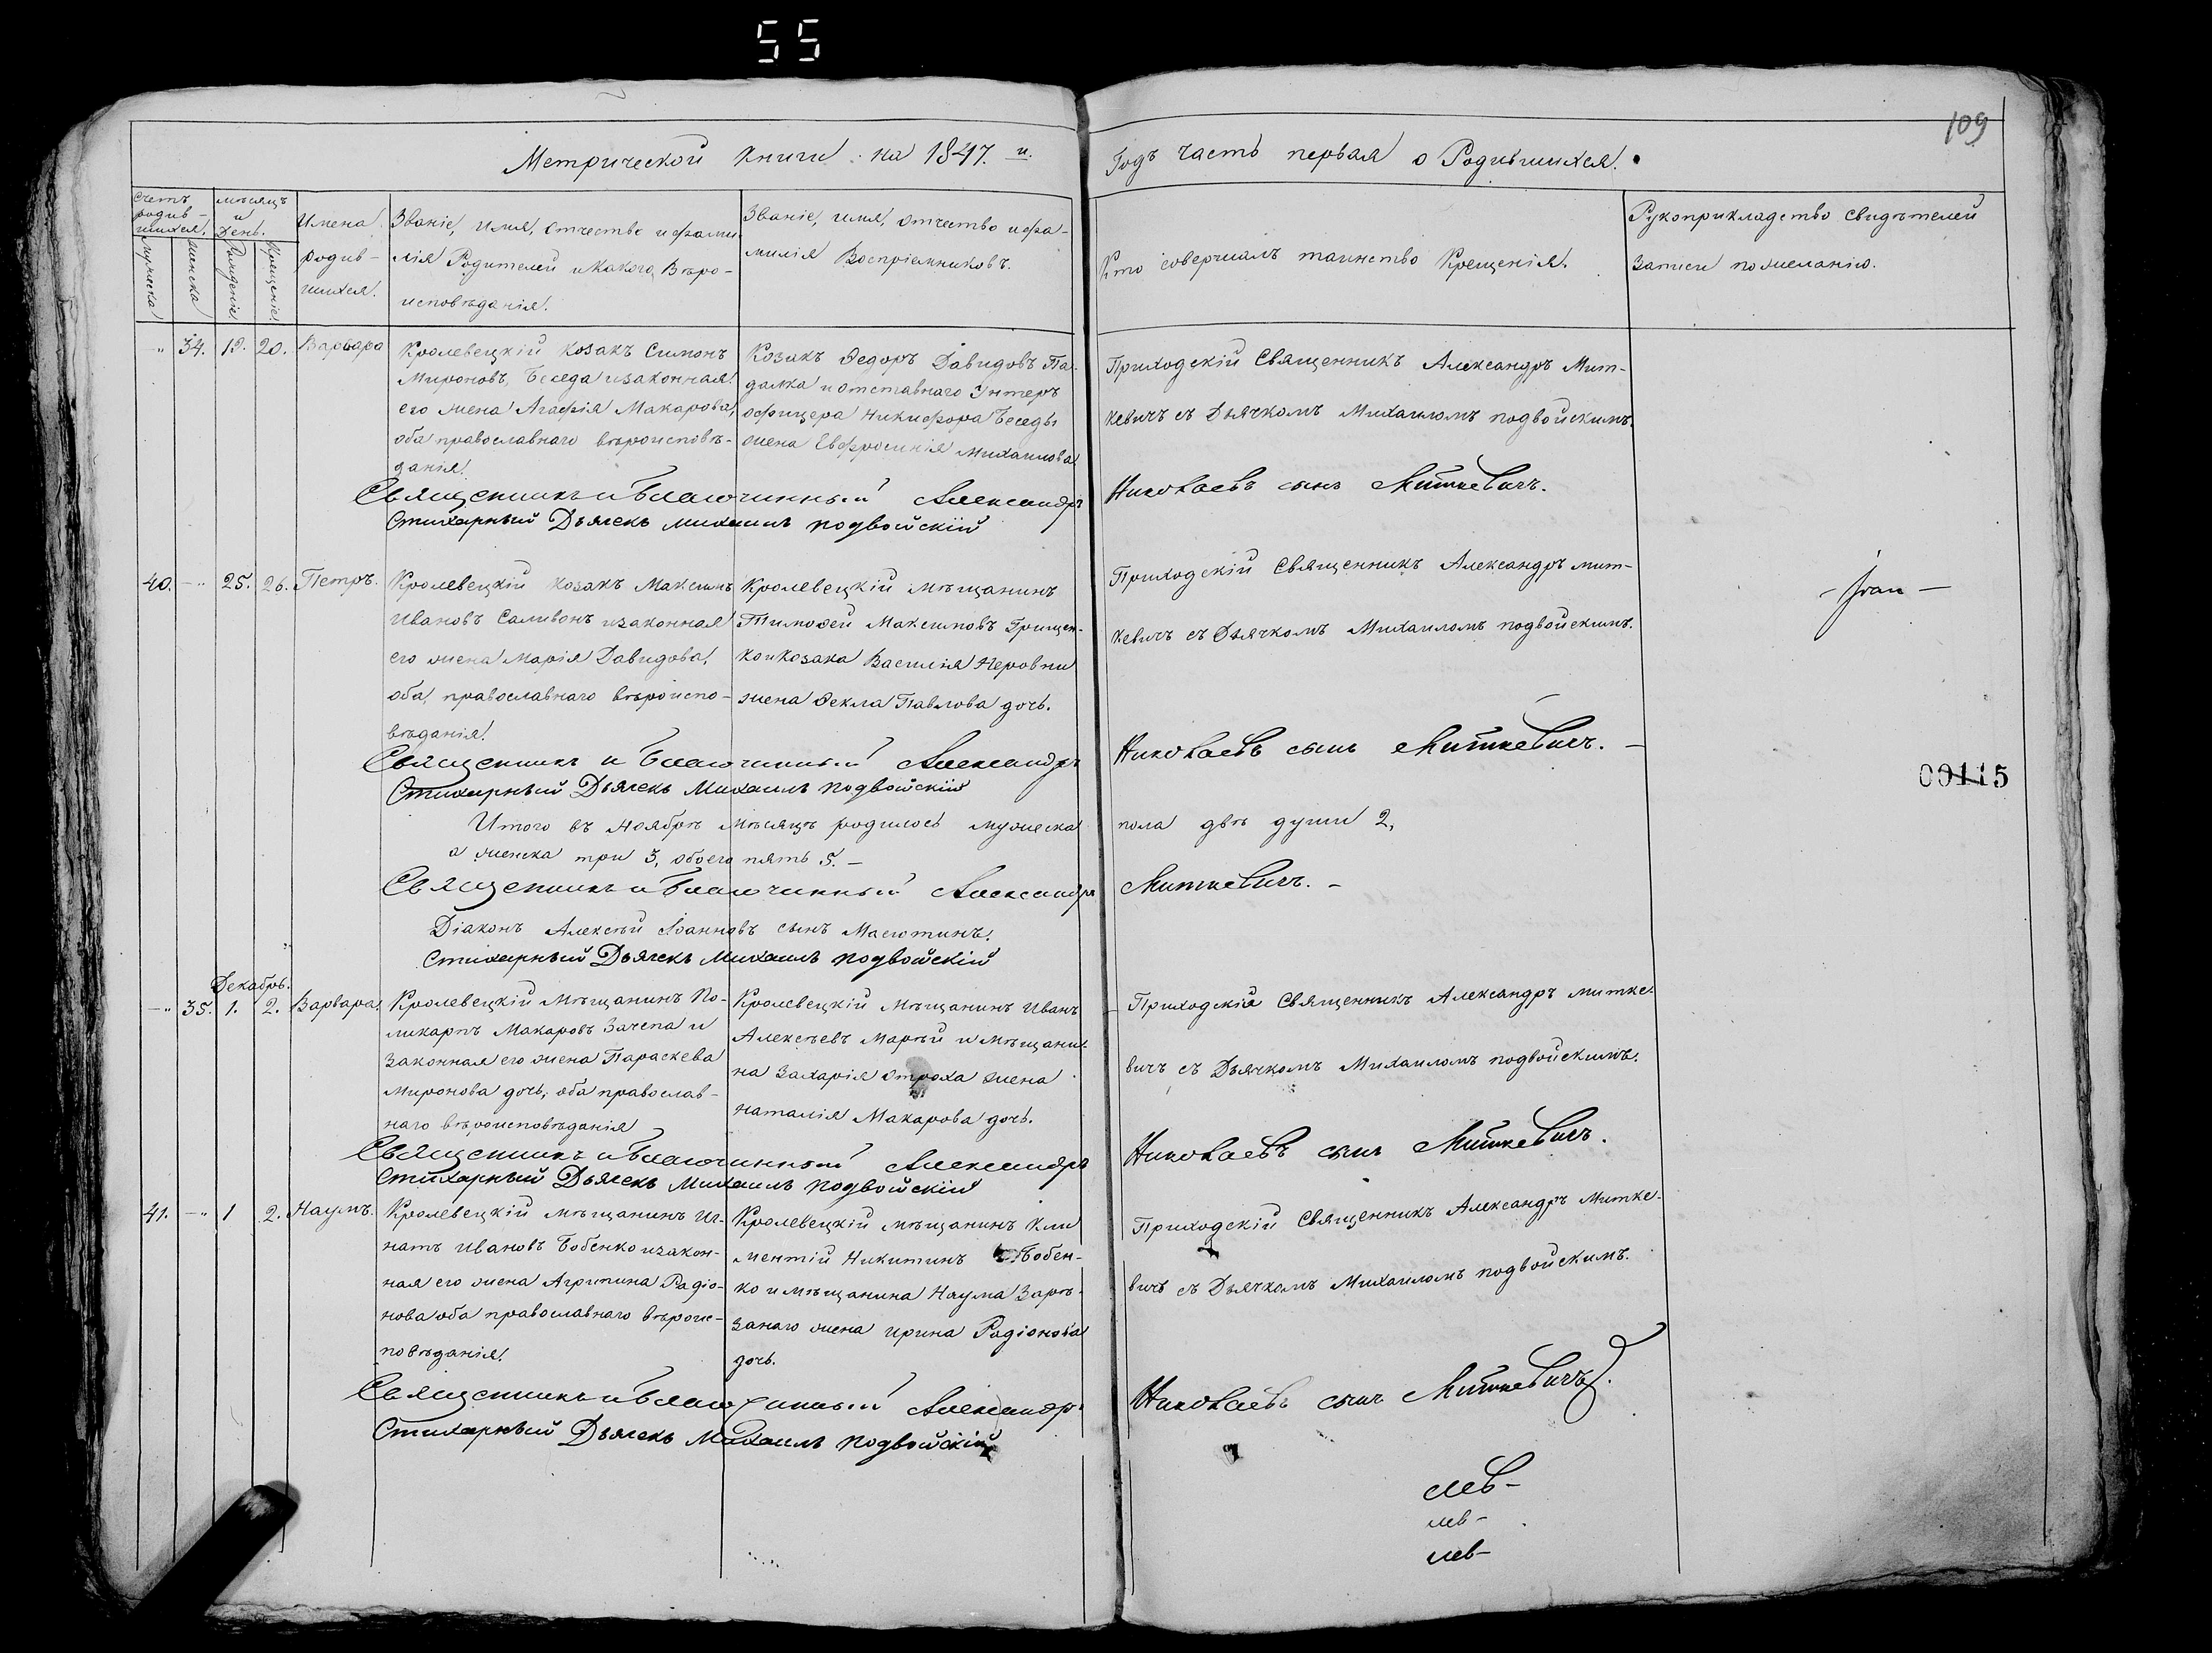 55
109
Метрической книги на 1847.й
Годъ часть первая о Родившихся.
Счетъ родив-
шихся.
мужеска
женска
мѣсяцъ
и
день.
Рожденіе
Крещеніе
Имена
родив-
шихся.
Званіе, имя, отчество и фами-
лія Родителей и какого Вѣро-
исповѣданія.
Званіе, имя, отчество и фа-
милія Воспріемниковъ.
Кто совершалъ таинство Крещенія.
Рукоприкладство свидѣтелей
записи по желанію.
" 34. 19. 20. Варвара
Кролевецкій козакъ Симонъ
Мироновъ Беседа и законная
его жена Агафія Макарова,
оба православнаго вѣроисповѣ-
данія.
Козакъ Ѳедоръ Давидовъ Па-
далка и отставнаго Унтеръ
офицера Никифора Беседы
жена Евфросинія Михаилова
Приходскій Священникъ Александръ Мит-
кевичъ съ Дьячкомъ Михаиломъ подвойскимъ.
Священникъ и Благочинный Александръ
Николаевъ сынъ Миткевичъ.
Стихарный Дьячекъ Михаилъ подвойскій
40. - " 25. 26. Петръ.
Кролевецкій козакъ Максимъ
Ивановъ Саливонъ и законная
его жена Марія Давидова,
оба православнаго вѣроиспо-
вѣданія.
Кролевецкій мѣщанинъ
Тимоѳей Максимовъ Грищен-
ко и козака Василія Неровни
жена Ѳекла Павлова дочь.
Приходскій Священникъ Александръ мит-
кевичъ съ Дьячкомъ Михаиломъ подвойскимъ.
Священникъ и Благочинный Александръ
Николаевъ сынъ Миткевичъ. -
Стихарный Дьячекъ Михаилъ подвойскій
00115
Итого въ Ноябрѣ мѣсяцѣ родилось мужеска
пола двѣ души 2,
а женска три 3, обоего пять 5. -
Священникъ и Благочинный Александръ
Миткевичъ. -
Діаконъ Алексѣй Іоанновъ сынъ Масютинъ.
Стихарный Дьячекъ Михаилъ подвойскій
Декабрь.
- " 35. 1. 2. Варвара.
Кролевецкій мѣщанинъ По-
ликарпъ Макаровъ Зачепа и
законная его жена Параскева
Миронова дочь, оба православ-
наго вѣроисповѣданія
Кролевецкій мѣщанинъ Иванъ
Алексѣевъ и мѣщани-
на Захарія Отроха жена
наталія Макарова дочь.
Приходскій Священникъ Александръ митке-
вичъ съ Дьячкомъ Михаиломъ подвойскимъ.
Священникъ и Благочинный Александръ
Николаевъ сынъ Миткевичъ.
Стихарный Дьячекъ Михаилъ подвойскій
41. - " 1 2. Наумъ.
Кролевецкій мѣщанинъ Иг-
натъ Ивановъ Бобенко и закон-
ная его жена Агрипина Радіо-
нова оба православнаго вѣроис-
повѣданія.
Кролевецкій мѣщанинъ Кли
ментій Никитинъ Бобен-
ко и мѣщанина Наума Зарѣ-
занаго жена Ирина Радіонова
дочь.
Приходскій Священникъ Александръ Митке-
вичъ съ Дьячкомъ Михаиломъ подвойскимъ.
Священникъ и Благочинный Александръ
Николаевъ сынъ Миткевичъ.
Стихарный Дьячекъ Михаилъ подвойскій